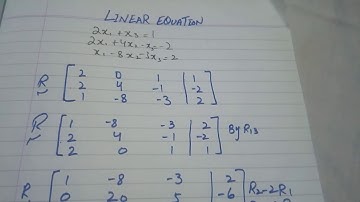 LINEAR EQUATION
2x₁ + x₃ = 1
2x₁ + 4x₂ - x₃ = -2
x₁ - 8x₂ - 3x₃ = 2
R ~ [ 2 0 1 | 1
2 4 -1 | -2
1 -8 -3 | 2 ]
R ~ [ 1 -8 -3 | 2
2 4 -1 | -2
2 0 1 | 1 ] By R₁₃
R [ 1 -8 -3 | 2
0 20 5 | -6 ] R₂-2R₁